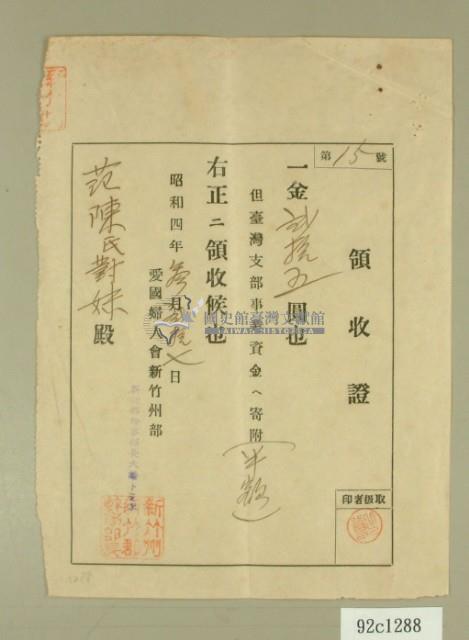 第15號
領收證
一金貳拾五圓也
但臺灣支部事業資金ヘ寄附(半額)
右正ニ領收候也
昭和四年參月貳拾七日
愛國婦人會新竹州部
范陳氏對妹殿
取扱者印
新竹州
國史館臺灣文獻館
TAIWAN HISTORICA
92c1288